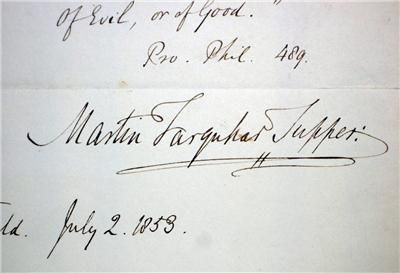 of Evil, or of Good."
Pro. Phil. 489.
Martin Farquhar Tupper:
July 2. 1853.